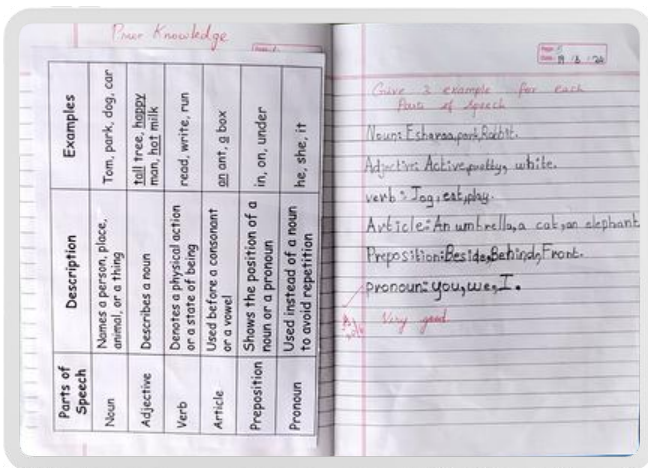 Prior Knowledge
Parts of Speech
Description
Examples
Noun
Names a person, place,
animal, or a thing
Tom, park, dog, car
Adjective
Describes a noun
tall tree, happy
man, hot milk
Verb
Denotes a physical action
or a state of being
read, write, run
Article
Used before a consonant
or a vowel
an ant, a box
Preposition
Shows the position of a
noun or a pronoun
in, on, under
Pronoun
Used instead of a noun
to avoid repetition
he, she, it
Give 3 example for each
Parts of Speech
Noun: Esharaa, park, Rabbit.
Adjective: Active, pretty, white.
verb: Jog, eat, play.
Article: An umbrella, a cat, an elephant
Preposition: Beside, Behind, Front.
pronoun: you, we, I.
Very good